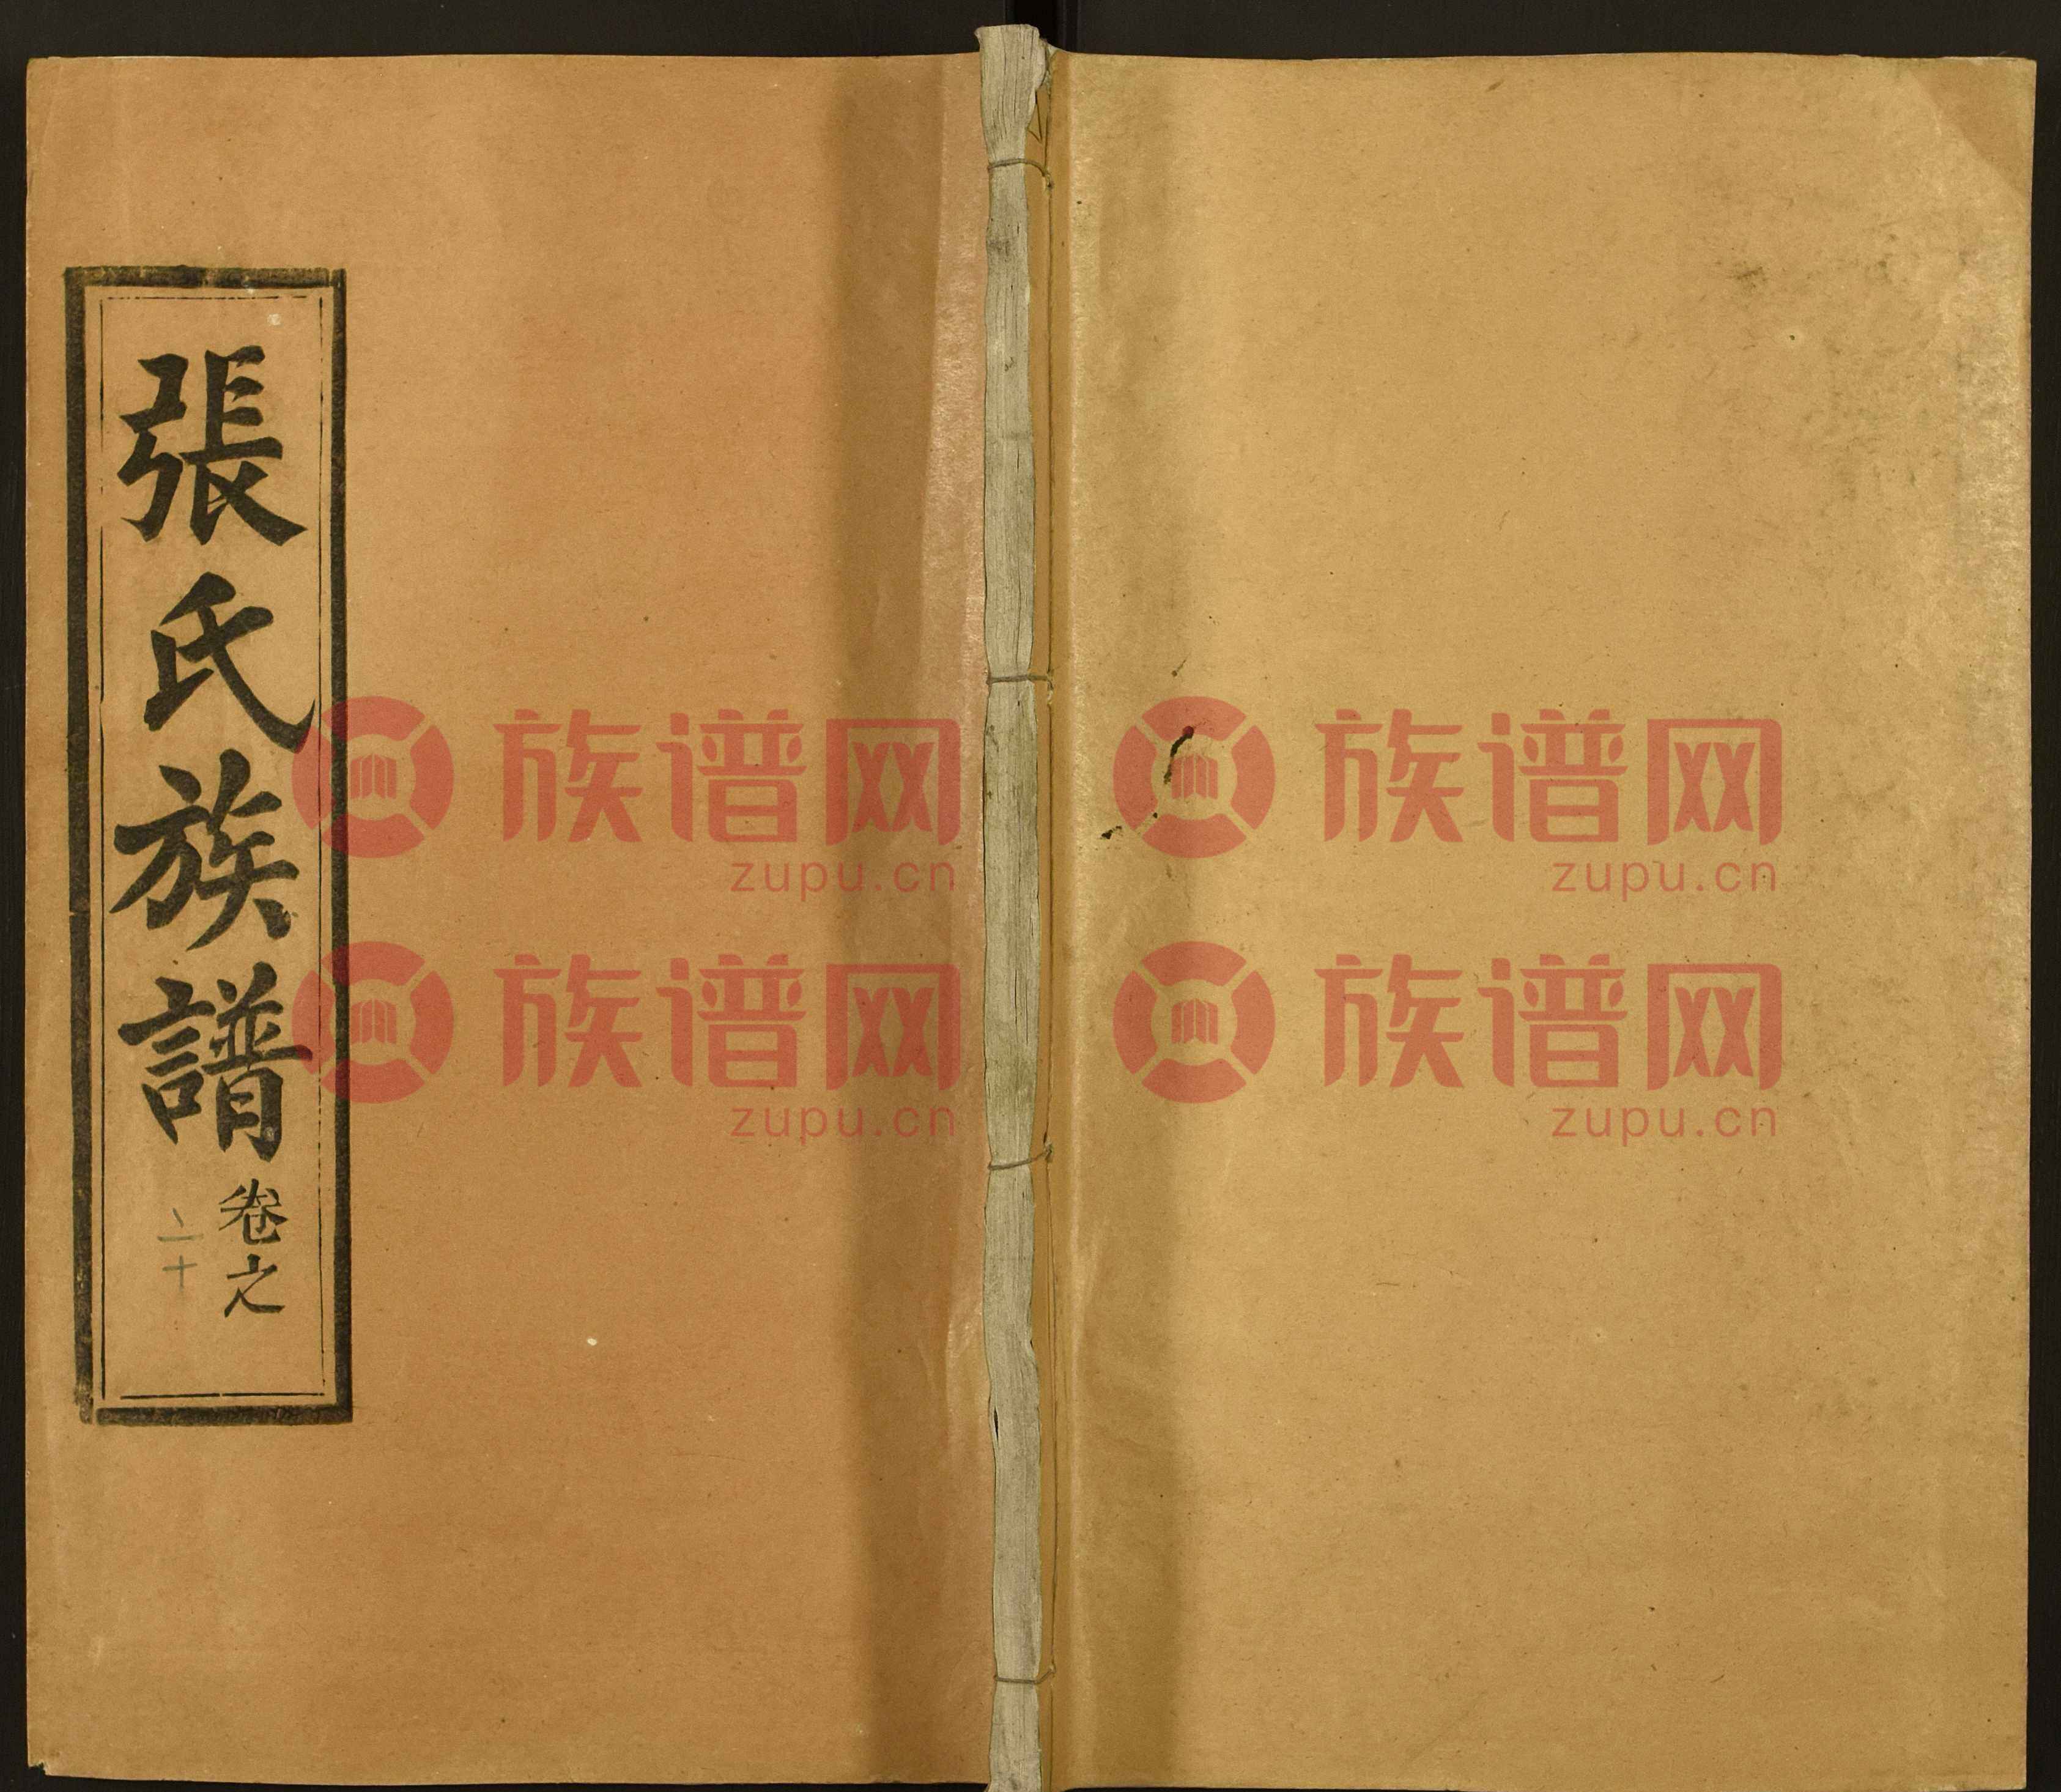 張氏族譜
卷之
二十
族谱网
zupu.cn
族谱网
zupu.cn
族谱网
zupu.cn
族谱网
zupu.cn